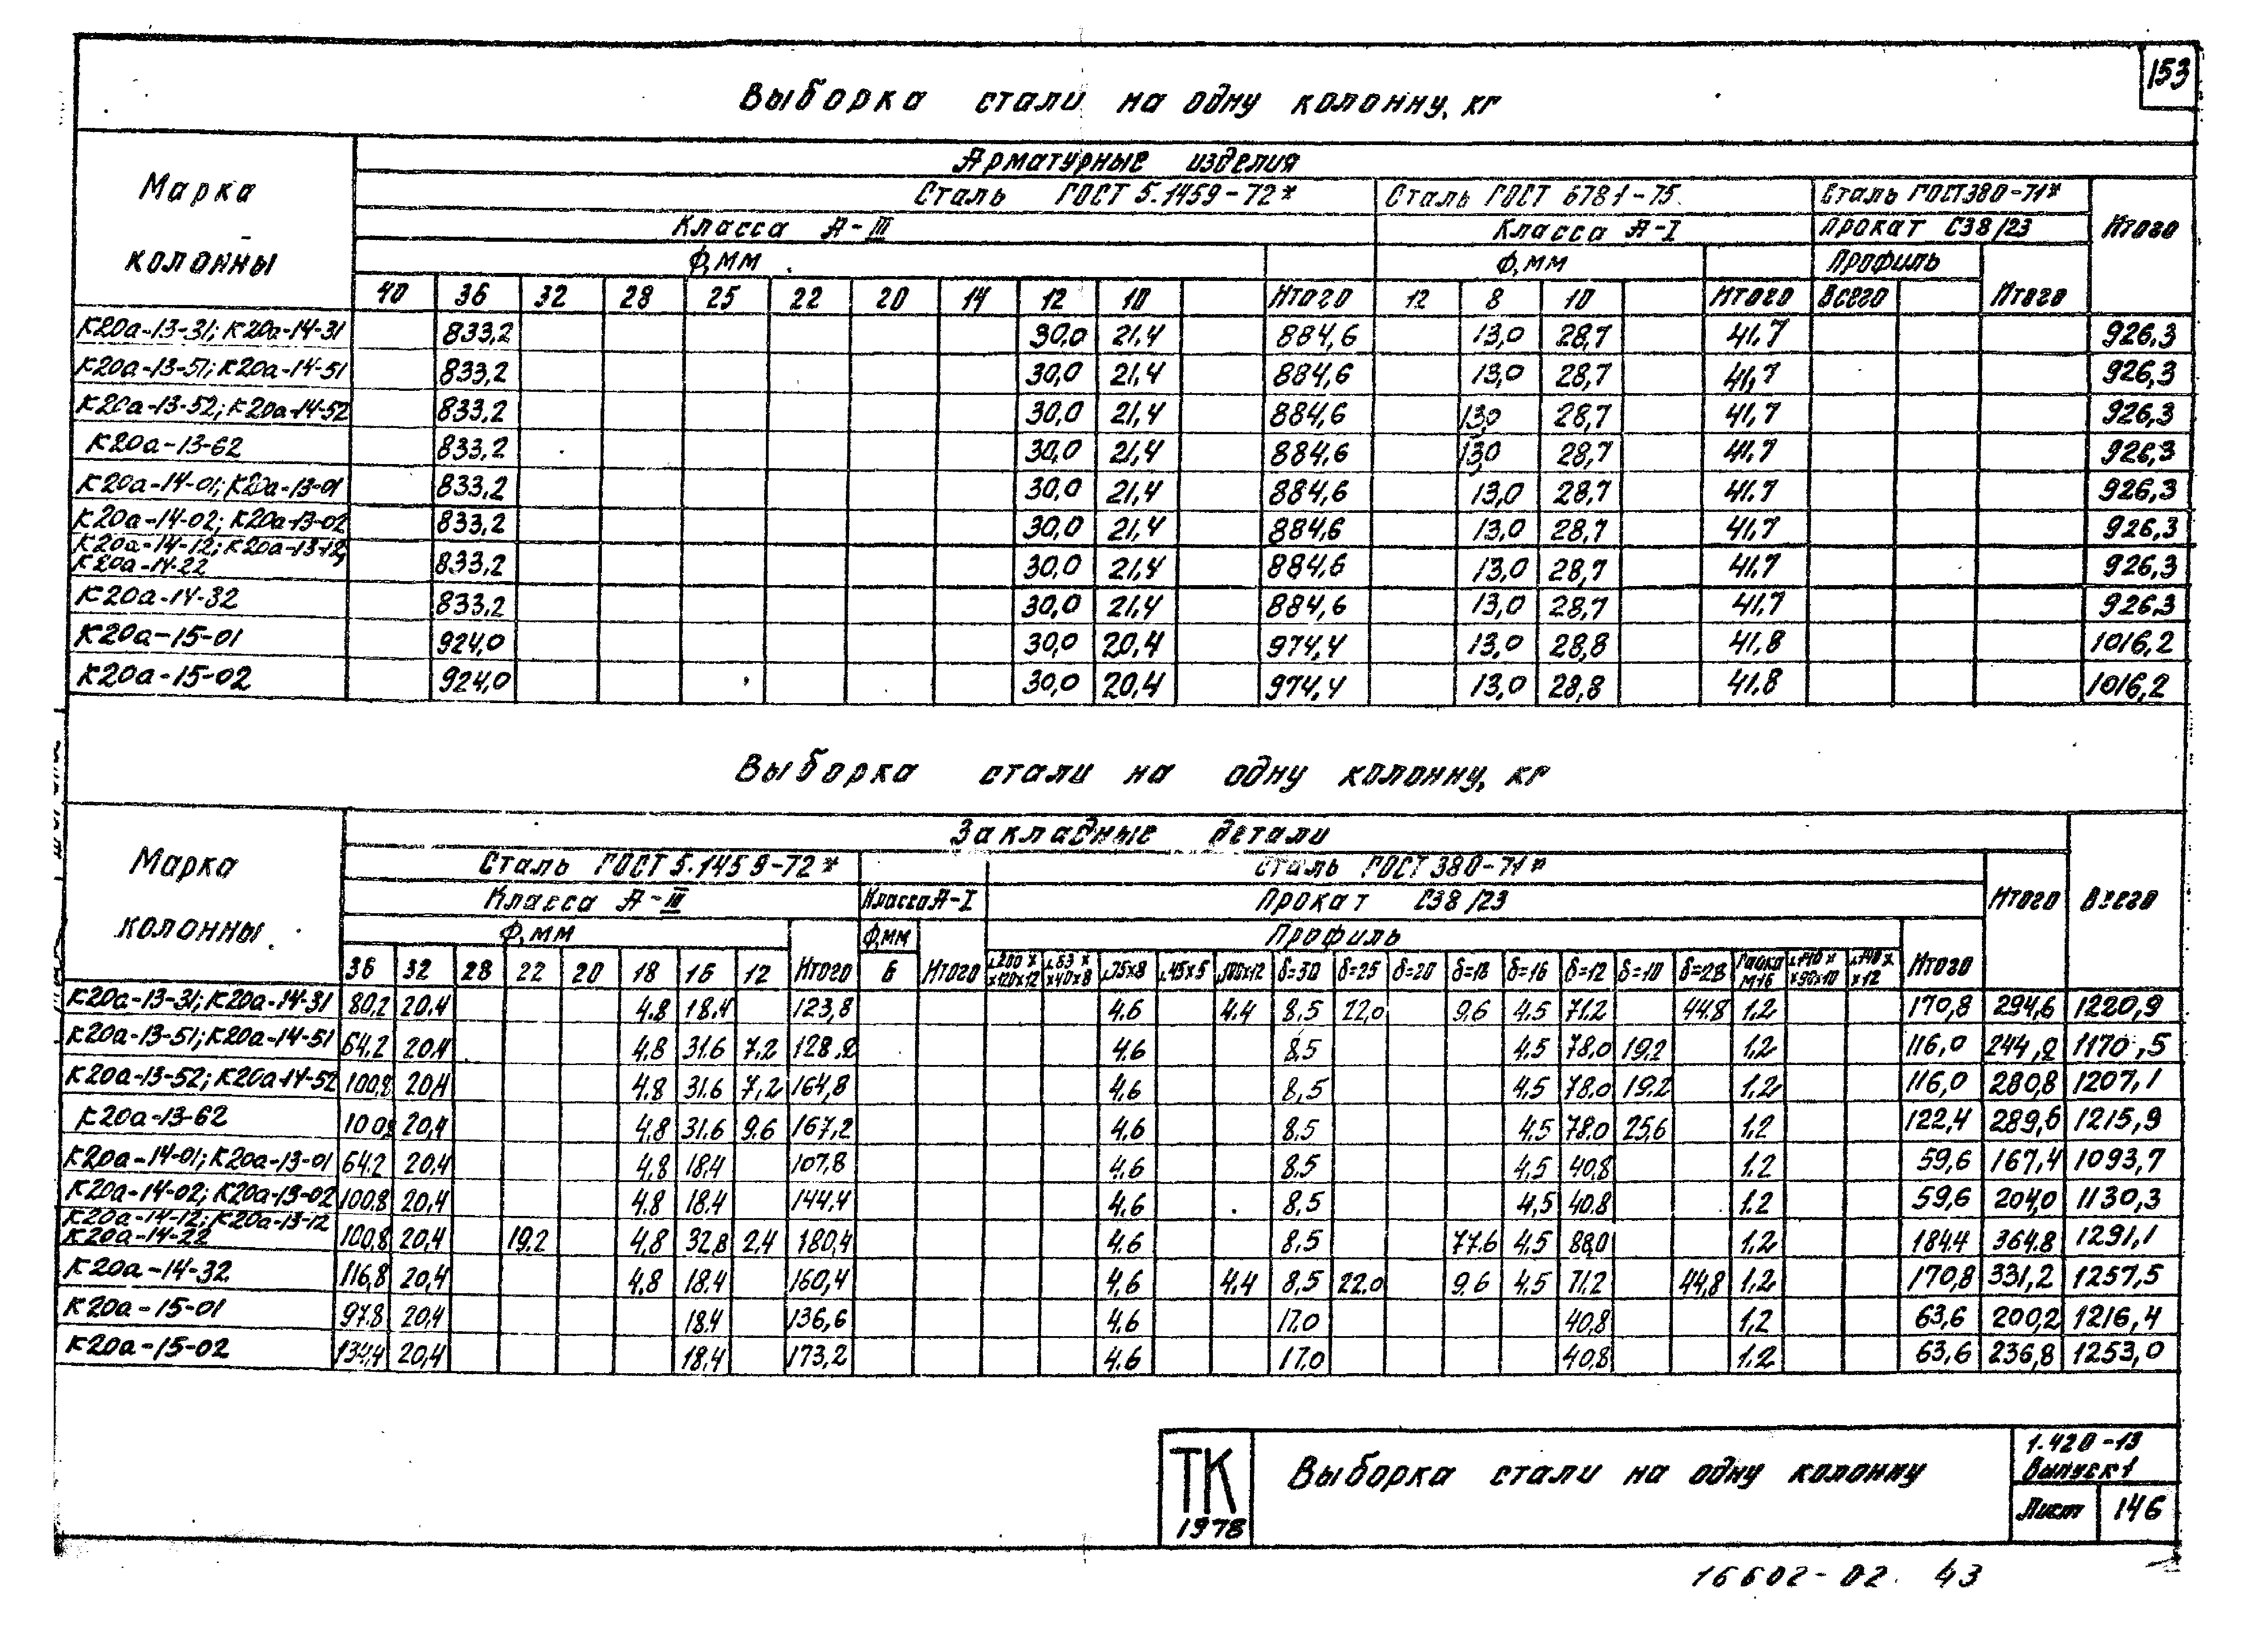 153
Выборка стали на одну колонну, кг
Марка колонны
Арматурные изделия
Сталь ГОСТ 5.1459-72* Сталь ГОСТ 6781-75 Сталь ГОСТ 380-71* Итого
Класса А-III Класса А-I Прокат С38/23
Ф, мм Ф, мм Профиль
40 36 32 28 25 22 20 14 12 10 Итого 12 8 10 Итого Всего Итого
К20а-13-31; К20а-14-31 833,2 30,0 21,4 884,6 13,0 28,7 41,7 926,3
К20а-13-51; К20а-14-51 833,2 30,0 21,4 884,6 13,0 28,7 41,7 926,3
К20а-13-52; К20а-14-52 833,2 30,0 21,4 884,6 13,0 28,7 41,7 926,3
К20а-13-62 833,2 30,0 21,4 884,6 13,0 28,7 41,7 926,3
К20а-14-01; К20а-13-01 833,2 30,0 21,4 884,6 13,0 28,7 41,7 926,3
К20а-14-02; К20а-13-02 833,2 30,0 21,4 884,6 13,0 28,7 41,7 926,3
К20а-14-12; К20а-13-12,
К20а-14-22 833,2 30,0 21,4 884,6 13,0 28,7 41,7 926,3
К20а-14-32 833,2 30,0 21,4 884,6 13,0 28,7 41,7 926,3
К20а-15-01 924,0 30,0 20,4 974,4 13,0 28,8 41,8 1016,2
К20а-15-02 924,0 30,0 20,4 974,4 13,0 28,8 41,8 1016,2
Выборка стали на одну колонну, кг
Марка колонны
Закладные детали
Сталь ГОСТ 5.1459-72* Сталь ГОСТ 380-71*
Класса А-III Класса А-I Прокат С38/23 Итого Всего
Ф, мм Ф, мм Профиль
36 32 28 22 20 18 16 12 Итого 6 Итого ∟200××120×12 ∟63××40×8 ∟75×8 ∟45×5 ∟100×12 δ=30 δ=25 δ=20 δ=18 δ=16 δ=12 δ=10 δ=28 Гайка М16 ∟140××90×10 ∟140××12 Итого
К20а-13-31; К20а-14-31 80,2 20,4 4,8 18,4 123,8 4,6 4,4 8,5 22,0 9,6 4,5 71,2 44,8 1,2 170,8 294,6 1220,9
К20а-13-51; К20а-14-51 64,2 20,4 4,8 31,6 7,2 128,2 4,6 8,5 4,5 78,0 19,2 1,2 116,0 244,2 1170,5
К20а-13-52; К20а-14-52 100,8 20,4 4,8 31,6 7,2 164,8 4,6 8,5 4,5 78,0 19,2 1,2 116,0 280,8 1207,1
К20а-13-62 100,8 20,4 4,8 31,6 9,6 167,2 4,6 8,5 4,5 78,0 25,6 1,2 122,4 289,6 1215,9
К20а-14-01; К20а-13-01 64,2 20,4 4,8 18,4 107,8 4,6 8,5 4,5 40,8 1,2 59,6 167,4 1093,7
К20а-14-02; К20а-13-02 100,8 20,4 4,8 18,4 144,4 4,6 8,5 4,5 40,8 1,2 59,6 204,0 1130,3
К20а-14-12; К20а-13-12
К20а-14-22 100,8 20,4 19,2 4,8 32,8 2,4 180,4 4,6 8,5 77,6 4,5 88,0 1,2 184,4 364,8 1291,1
К20а-14-32 116,8 20,4 4,8 18,4 160,4 4,6 4,4 8,5 22,0 9,6 4,5 71,2 44,8 1,2 170,8 331,2 1257,5
К20а-15-01 97,8 20,4 18,4 136,6 4,6 17,0 40,8 1,2 63,6 200,2 1216,4
К20а-15-02 134,4 20,4 18,4 173,2 4,6 17,0 40,8 1,2 63,6 236,8 1253,0
ТК
1978
Выборка стали на одну колонну
1.420-13
Выпуск 1
Лист 146
16602-02 43